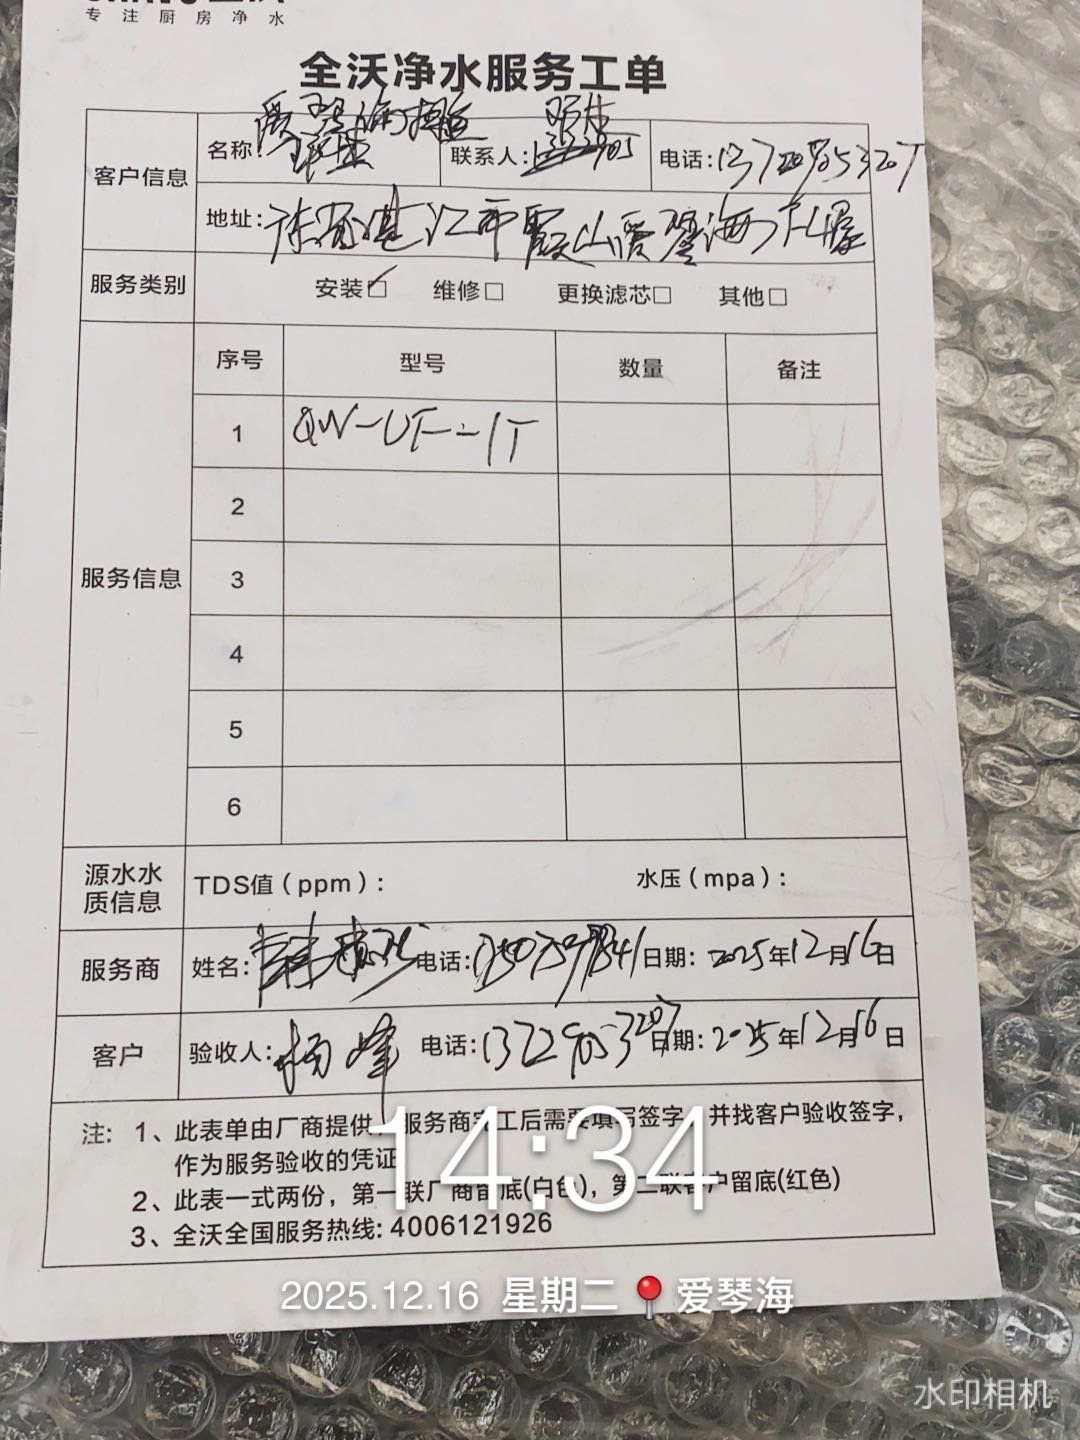 专注厨房净水
全沃净水服务工单
客户信息 名称: 爱琴海 联系人: 电话:
地址: 湛江市霞山爱琴海
服务类别 安装☑ 维修□ 更换滤芯□ 其他□
服务信息 序号 型号 数量 备注
1 QW-UF-1T
2
3
4
5
6
源水水质信息 TDS值(ppm): 水压(mpa):
服务商 姓名: 电话: 日期: 2025年12月16日
客户 验收人: 杨峰 电话: 日期: 2025年12月16日
注: 1、此表单由厂商提供, 服务商完工后需要填写签字, 并找客户验收签字,
作为服务验收的凭证
2、此表一式两份, 第一联厂商留底(白色), 第二联客户留底(红色)
3、全沃全国服务热线: 4006121926
14:34
2025.12.16 星期二 爱琴海
水印相机